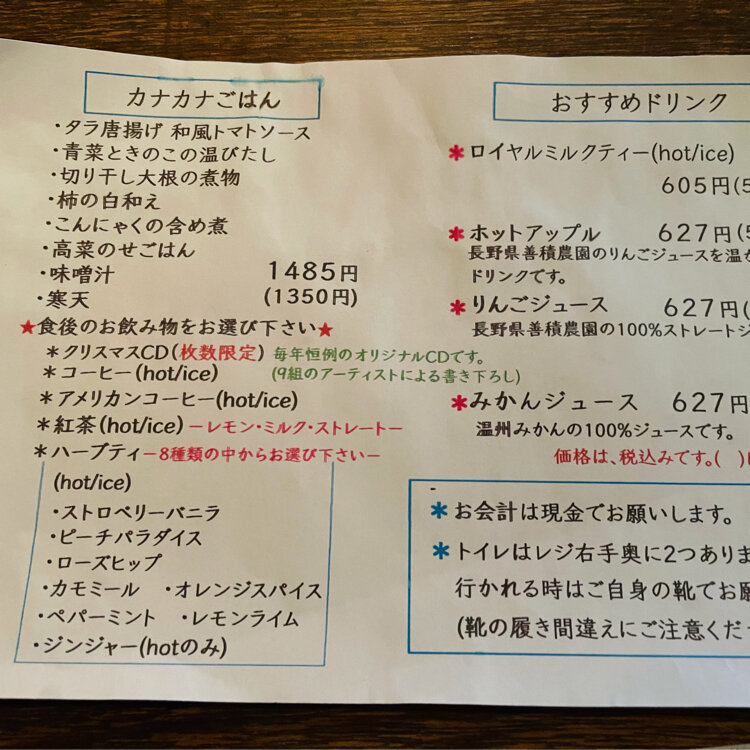 カナカナごはん
・タラ唐揚げ 和風トマトソース
・青菜ときのこの温びたし
・切り干し大根の煮物
・柿の白和え
・こんにゃくの含め煮
・高菜のせごはん
・味噌汁 1485円
・寒天 (1350円)
★食後のお飲み物をお選び下さい★
＊クリスマスCD(枚数限定) 毎年恒例のオリジナルCDです。
(9組のアーティストによる書き下ろし)
＊コーヒー(hot/ice)
＊アメリカンコーヒー(hot/ice)
＊紅茶(hot/ice)－レモン・ミルク・ストレート－
＊ハーブティ－8種類の中からお選び下さい－
(hot/ice)
・ストロベリーバニラ
・ピーチパラダイス
・ローズヒップ
・カモミール ・オレンジスパイス
・ペパーミント ・レモンライム
・ジンジャー(hotのみ)
おすすめドリンク
＊ロイヤルミルクティー(hot/ice)
605円(5
＊ホットアップル 627円(5
長野県善積農園のりんごジュースを温
ドリンクです。
＊りんごジュース 627円(
長野県善積農園の100%ストレート
＊みかんジュース 627円
温州みかんの100%ジュースです。
価格は、税込みです。( )
＊お会計は現金でお願いします。
＊トイレはレジ右手奥に2つありま
行かれる時はご自身の靴でお願
(靴の履き間違えにご注意くださ